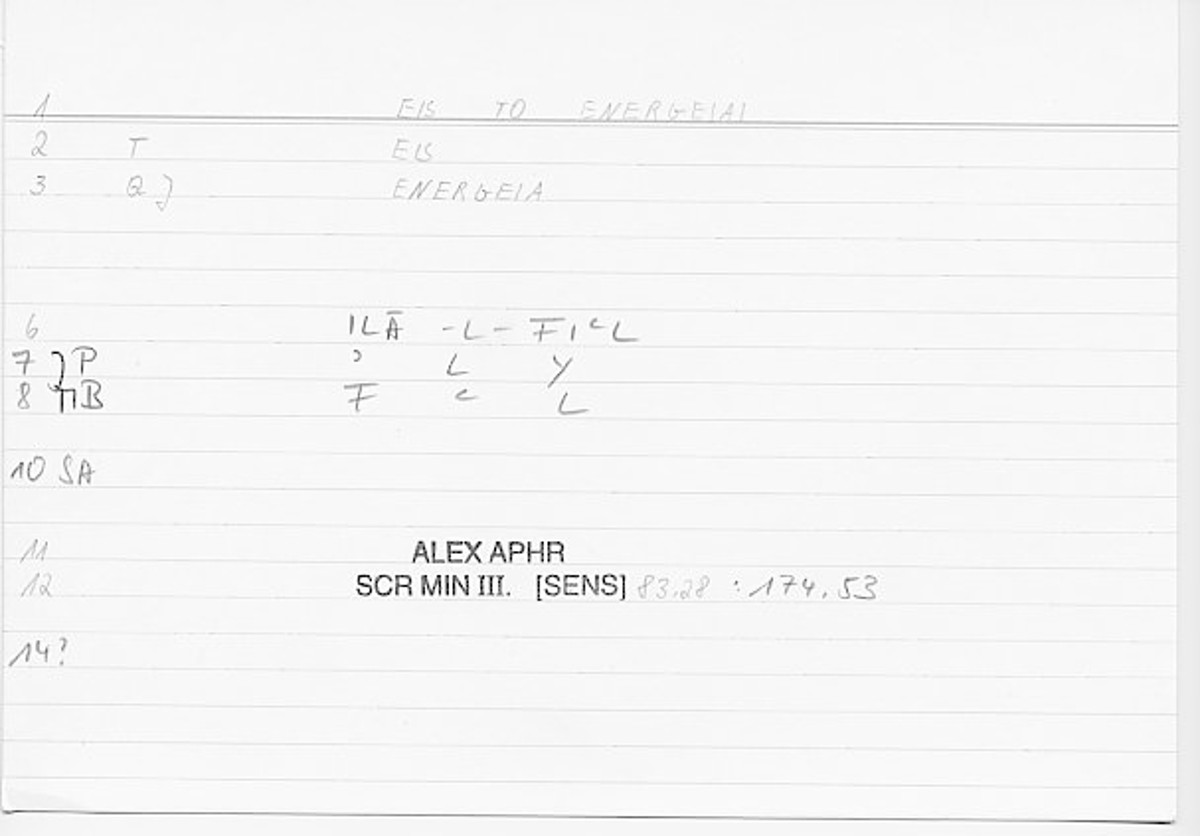 1 EIS TO ENERGEIAI
2 T EIS
3 Q} ENERGEIA
6 ILĀ -L- FIʿL
7 } P ʾ L Y
8 B F ʿ L
10 SA
11 ALEX APHR
12 SCR MIN III. [SENS] 83.28 : 174.53
14?